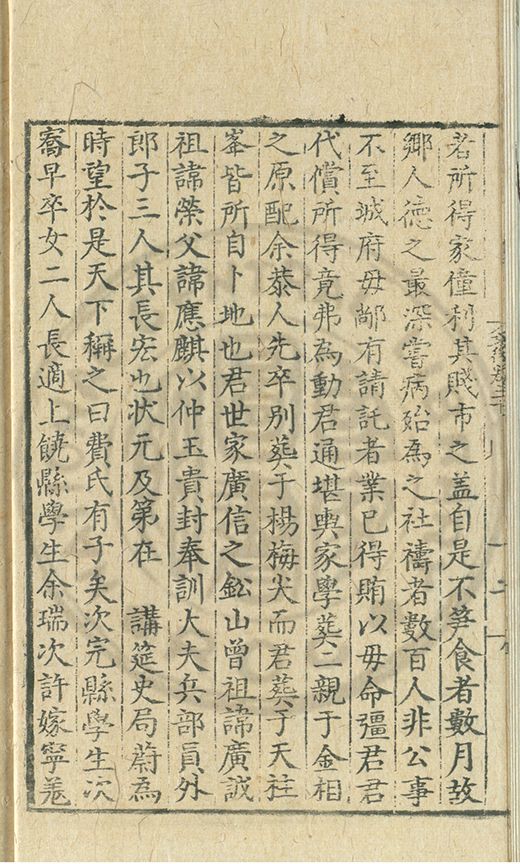 若所得家僮利其賤市之盖自是不笋食者數月故
鄉人德之最深嘗病殆為之社禱者數百人非公事
不至城府毋鄰有請託者業已得賄以毋命彊君君
代償所得竟弗為動君通堪輿家學葬二親于金相
之原配余恭人先卒別葬于楊梅尖而君葬于天柱
峯皆所自卜地也君世家廣信之鈆山曾祖諱廣誠
祖諱榮父諱應麒以仲玉貴封奉訓大夫兵部員外
郎子三人其長宏也状元及第在 講筵史局蔚為
時望於是天下稱之曰費氏有子矣次完縣學生次
寯早卒女二人長適上饒縣學生余瑞次許嫁寧羗